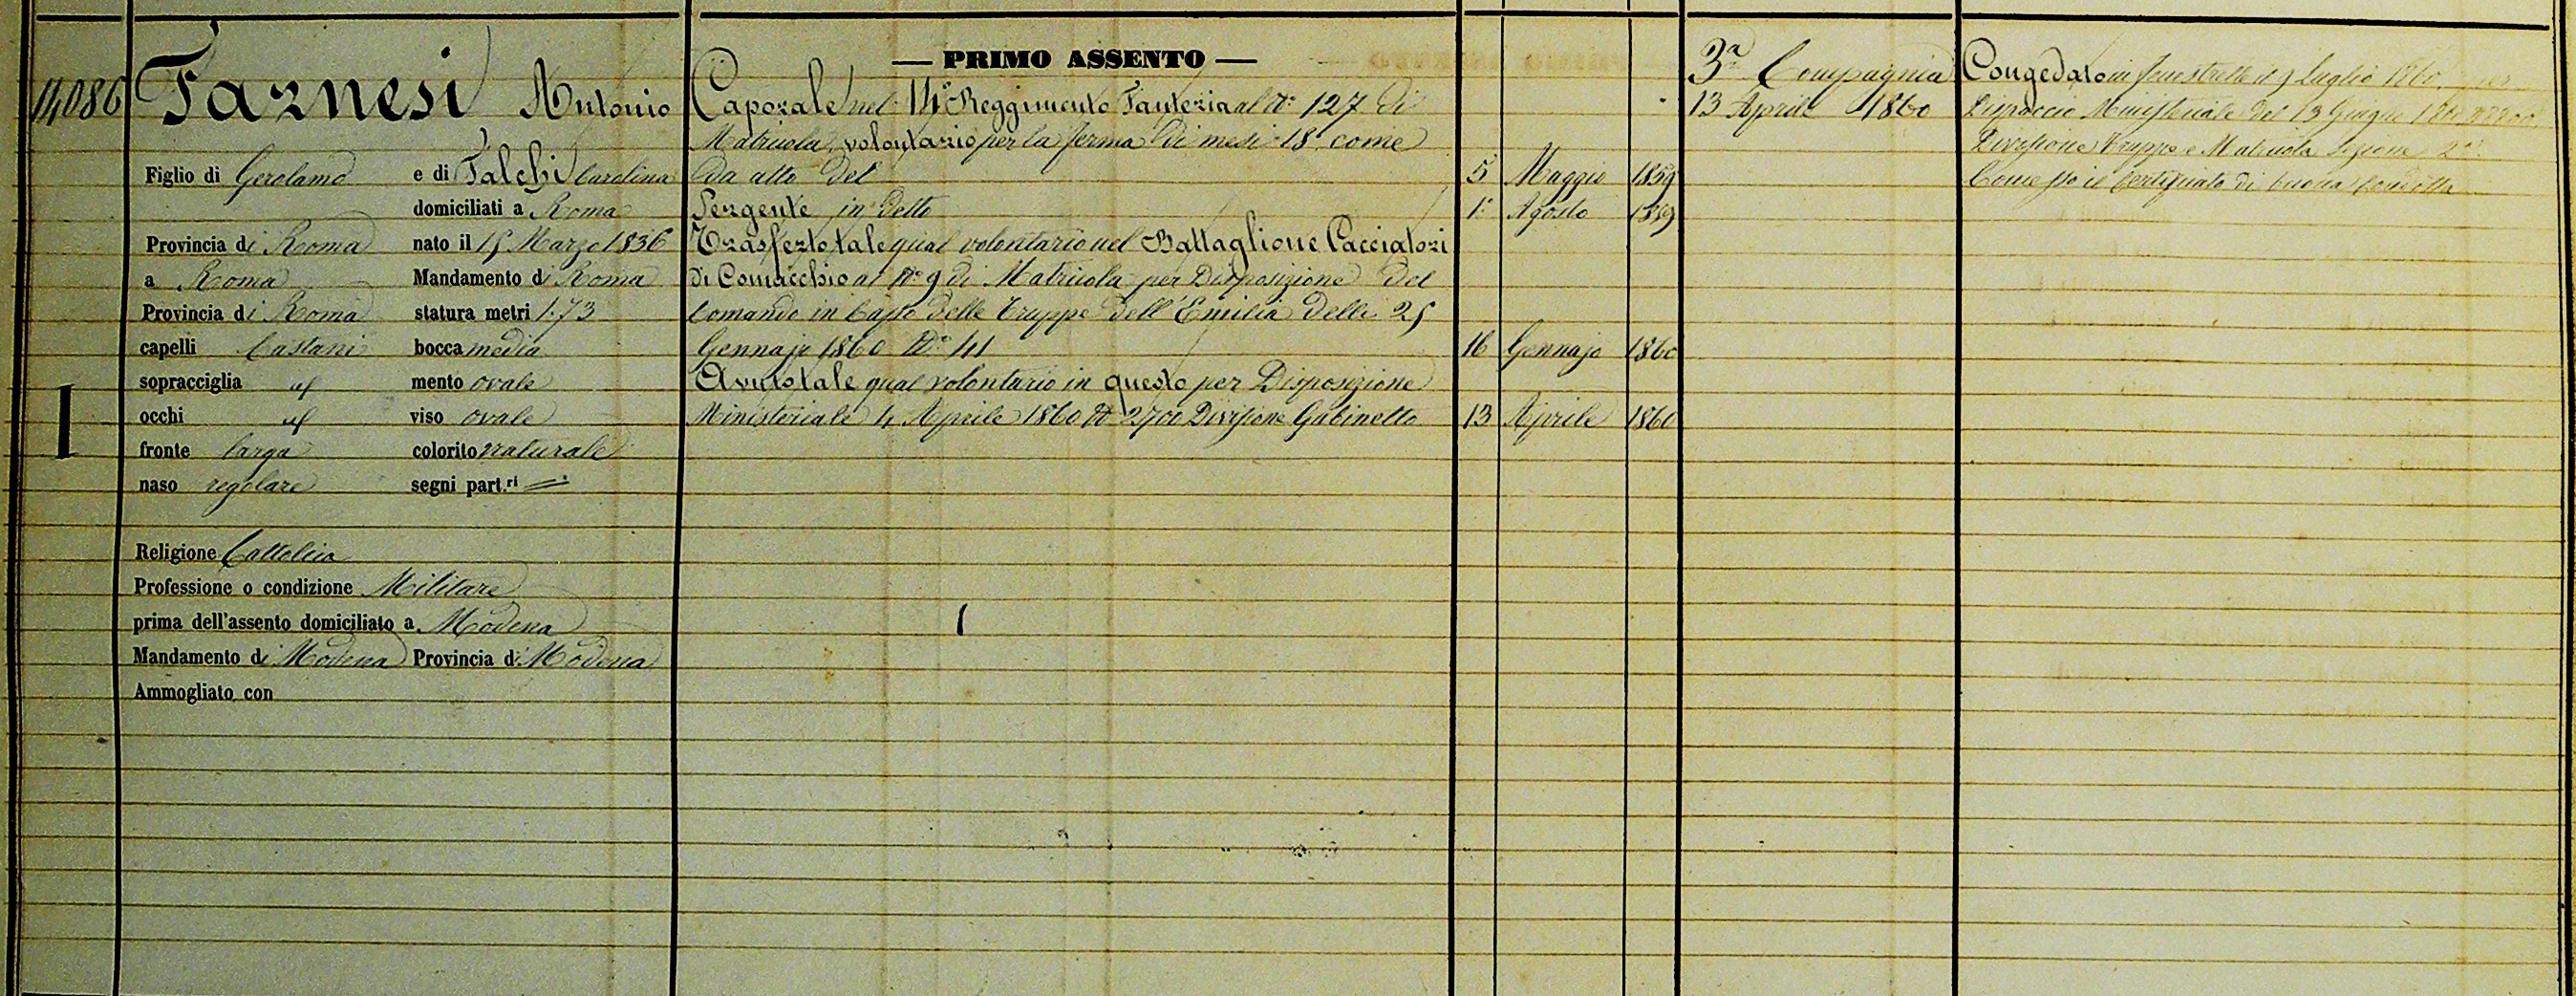 14086
Farnesi Antonio
Figlio di Gerolamo e di Falchi Carolina
domiciliati a Roma
Provincia di Roma nato il 15 Marzo 1836
a Roma Mandamento di Roma
Provincia di Roma statura metri 1.73
capelli Castani bocca media
sopracciglia id mento ovale
occhi id viso ovale
fronte larga colorito naturale
naso regolare segni part.ri =
Religione Cattolica
Professione o condizione Militare
prima dell'assento domiciliato a Modena
Mandamento di Modena Provincia di Modena
Ammogliato con
— PRIMO ASSENTO —
Caporale nel 14° Reggimento Fanteria al N° 127 di
Matricola, volontario per la ferma di mesi 18 come
da atto del 5 Maggio 1859
Sergente in detto 1° Agosto 1859
Trasferto tale qual volontario nel Battaglione Cacciatori
di Comacchio al N° 9 di Matricola per Disposizione del
Comando in Capo delle Truppe dell'Emilia delli 25
Gennajo 1860 N° 141 16 Gennajo 1860
Avuto tale qual volontario in questo per Disposizione
Ministeriale 4 Aprile 1860 N° 2700 Divisione Gabinetto 13 Aprile 1860
3a Compagnia
13 Aprile 1860
Congedato in Fenestrelle il 9 Luglio 1860 per
Dispaccio Ministeriale del 13 Giugno
Divisione Truppe e Matricola Sezione 2a
Concesso il Certificato di buona Condotta